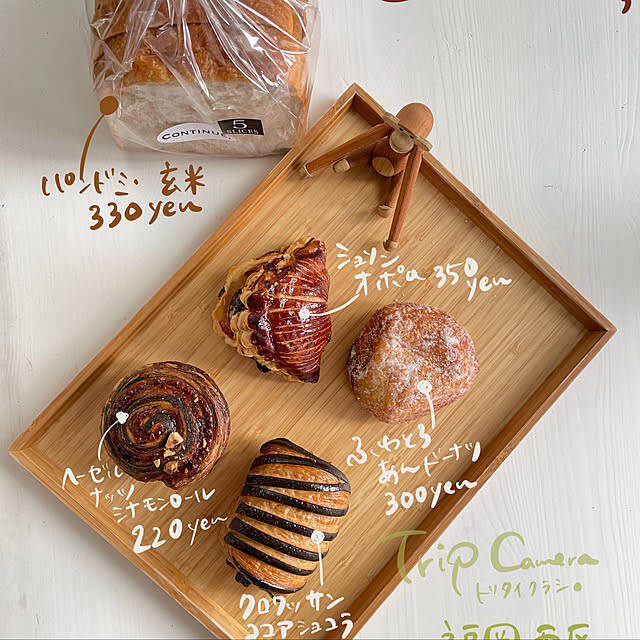 5
SLICES
CONTINUE
パンドミ・玄米
330yen
ショソン
オポム 350
yen
ヘーゼル
ナッツ
シナモンロール
220yen
ふわとろ
あんドーナツ
300yen
クロワッサン
ココアショコラ
Trip Camera
トリタイクラシ。